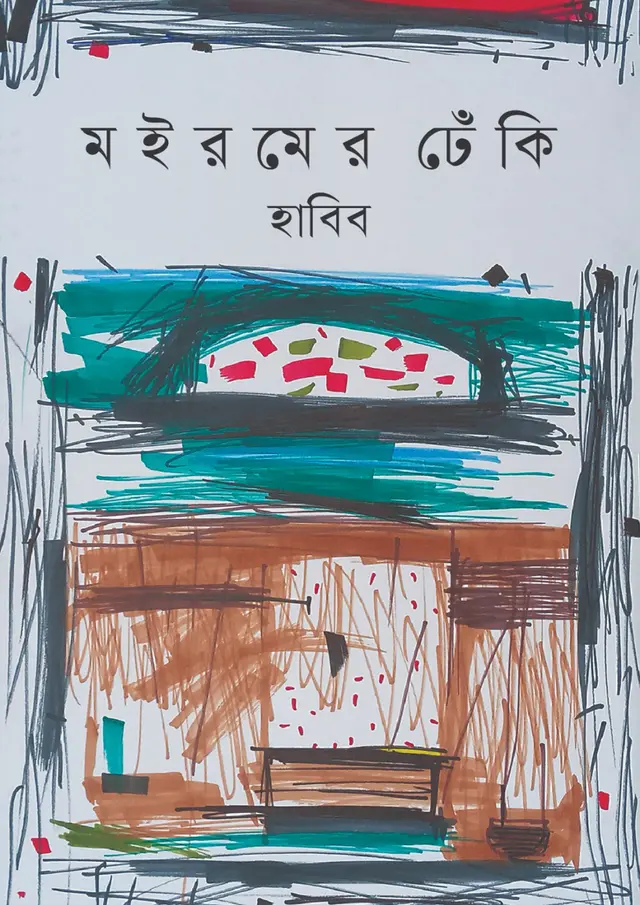 মইরমের ঢেঁকি
হাবিব